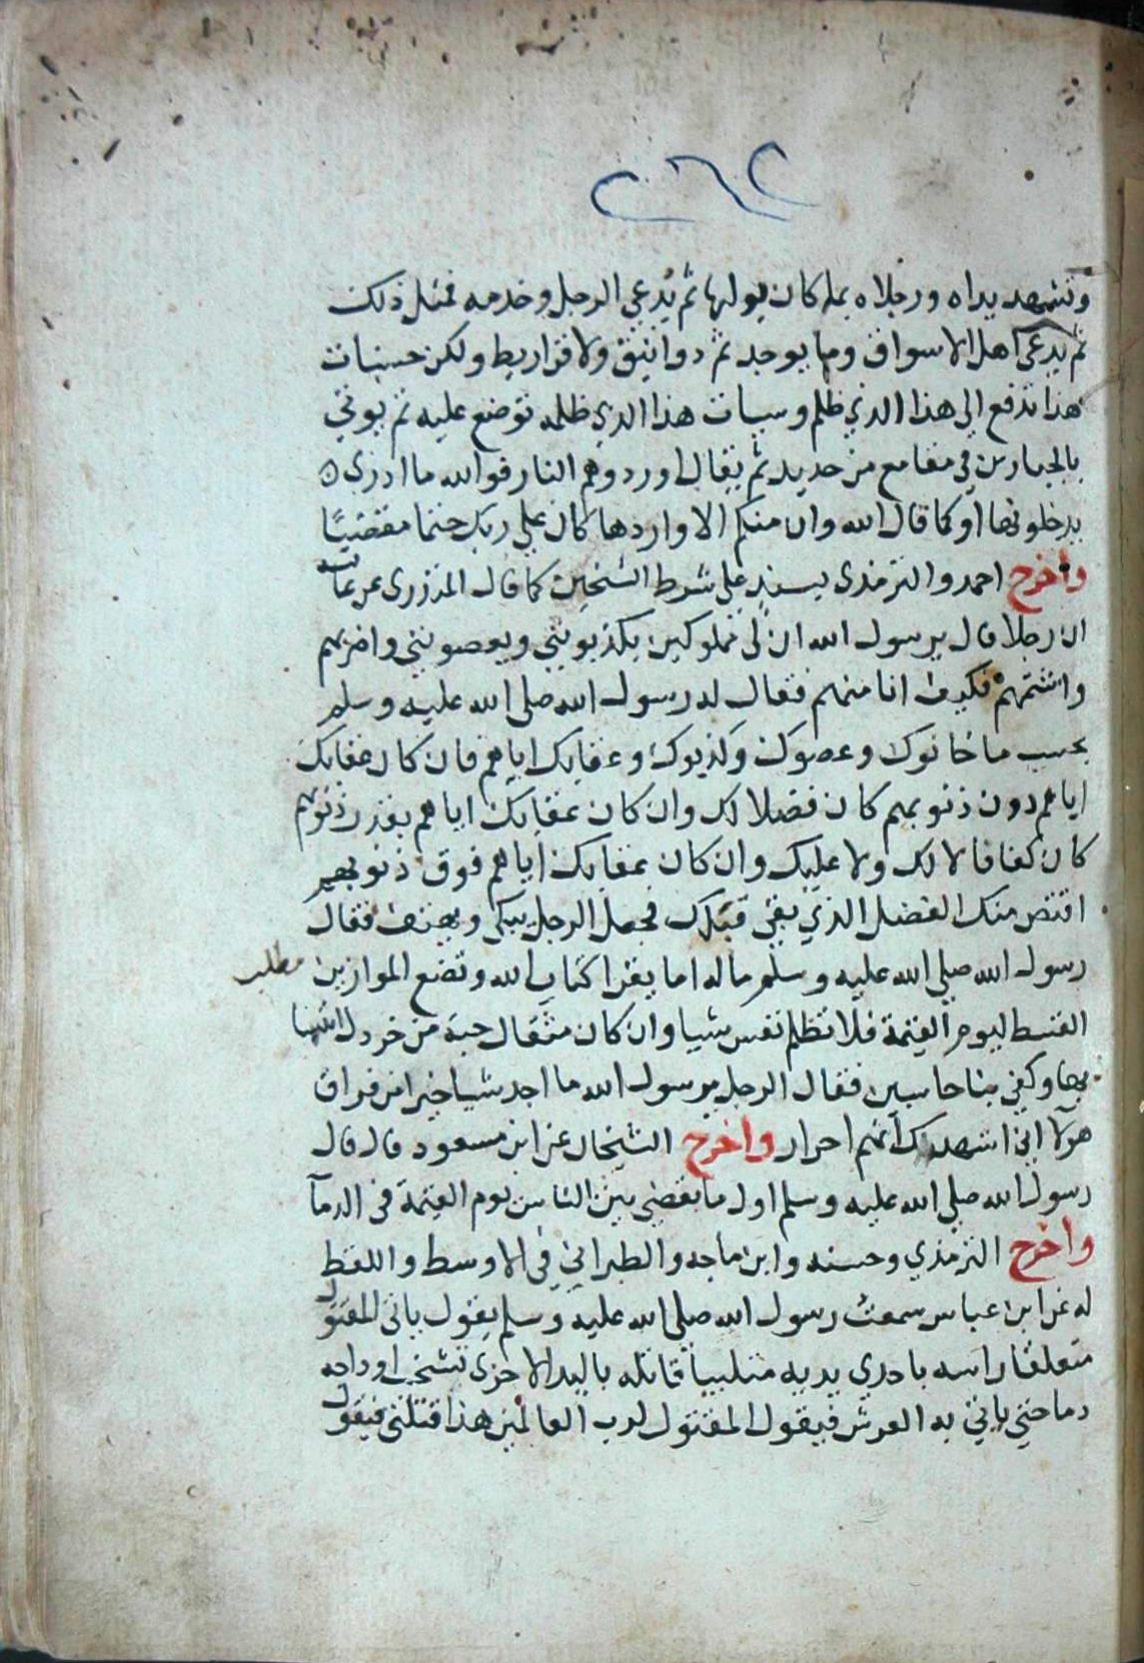 ٢٦٢
وتشهد يداه ورجلاه بما كان يوليها ثم يدعى الرجل وخدمه فمثل ذلك
ثم يدعى اهل الاسواق وما يوجد ثم دوانيق ولا قراريط ولكن حسنات
هذا تدفع الى هذا الذي ظلم وسيات هذا الذي ظلمه توضع عليه ثم يوتي
بالجبارين في مقامع من حديد ثم يقال اوردوهم النار فوالله ما ادري
يدخلونها او كما قال الله وان منكم الا واردها كان على ربك حتما مقضيًا
واخرج احمد والترمذى بسند على شرط الشيخين كما قال المنذرى عن عائشه
ان رجلا قال يرسول الله ان لى مملوكين يكذبونني ويعصونني واضربهم
واشتمهم فكيف انا منهم فقال له رسول الله صلى الله عليه وسلم
بحسب ما خانوك وعصوك وكذبوك وعقابك اياهم فان كان عقابك
اياهم دون ذنوبهم كان فضلا لك وان كان عقابك اياهم بقدر ذنوبهم
كان كفافا لا لك ولا عليك وان كان عقابك اياهم فوق ذنوبهم
اقتص منك الفضل الذي بقى قبلك فجعل الرجل يبكى ويهتف فقال
رسول الله صلى الله عليه وسلم ماله اما يقرا كتاب الله ونضع الموازين مطلب
القسط ليوم القيمة فلا تظلم نفس شيا وان كان مثقال حبة من خردل اتينا
بها وكفى بنا حاسبين فقال الرجل يرسول الله ما اجد شيا خيرا من فراق
هولآ اني اشهدك انهم احرار واخرج الشيخان عن ابن مسعود قال قال
رسول الله صلى الله عليه وسلم اول ما يقضى بين الناس يوم القيمة فى الدمآ
واخرج الترمذي وحسنه وابن ماجه والطبراني في الاوسط واللفظ
له عن ابن عباس سمعت رسول الله صلى الله عليه وسلم يقول ياتى المقتول
متعلقا راسه باحدى يديه متلببا قاتله باليد الاخرى تشخب اوداجه
دما حتي ياتي به العرش فيقول المقتول لرب العالمين هذا قتلنى فيقول